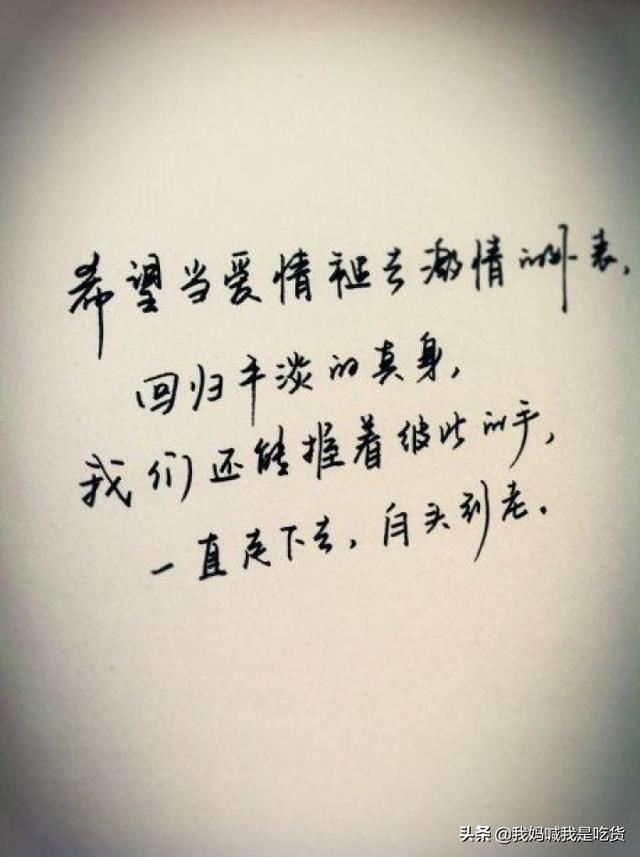 希望当爱情褪去激情的外表,
回归平淡的真身,
我们还能握着彼此的手,
一直走下去,白头到老。
头条 @我妈喊我是吃货